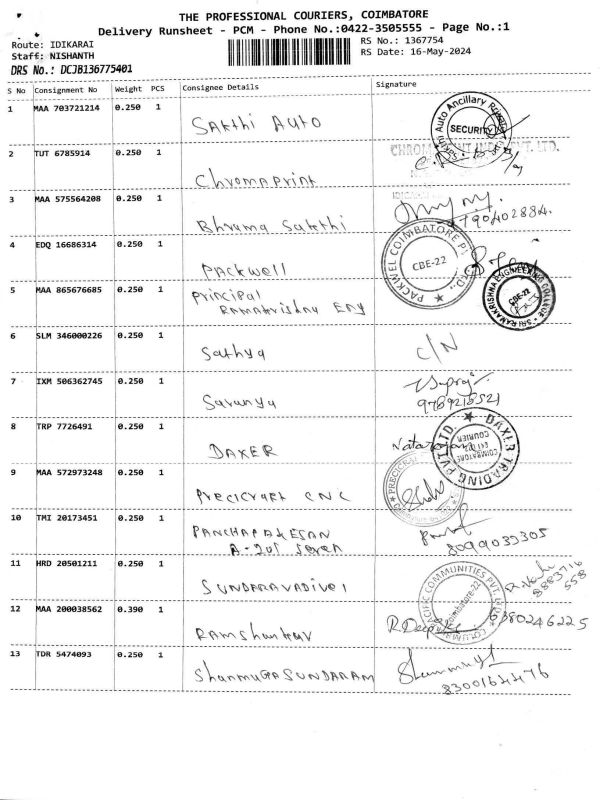 THE PROFESSIONAL COURIERS, COIMBATORE
Delivery Runsheet - PCM - Phone No.:0422-3505555 - Page No.:1
Route: IDIKARAI
RS No.: 1367754
Staff: NISHANTH
RS Date: 16-May-2024
DRS No.: DCJB136775401
S No Consignment No Weight PCS Consignee Details Signature
1 MAA 703721214 0.250 1 Sakthi Auto
SECURITY
2 TUT 6785914 0.250 1 Chromaprint
3 MAA 575564208 0.250 1 Bhrama Sakthi
4 EDQ 16686314 0.250 1 Packwell
PACKWEL COIMBATORE CBE-22
5 MAA 865676685 0.250 1 Principal
Ramakrishna Eng
SRI RAMAKRISHNA ENGINEERING COLLEGE CBE-22
6 SLM 346000226 0.250 1 Sathya C/N
7 IXM 506362745 0.250 1 Saranya
9789218521
8 TRP 7726491 0.250 1 DAXER
DAXER TRADING PVT LTD.
9 MAA 572973248 0.250 1 Precicraft CNC
10 TMI 20173451 0.250 1 PANCHAPAKESAN
A-201 Seven
8099033305
11 HRD 20501211 0.250 1 SUNDARAVADIVEl
12 MAA 200038562 0.390 1 Ramshankar
6380246225
COMMUNITIES PVT. LTD. Coimbatore-22
13 TDR 5474093 0.250 1 ShanmugaSUNDARAM
8300164476